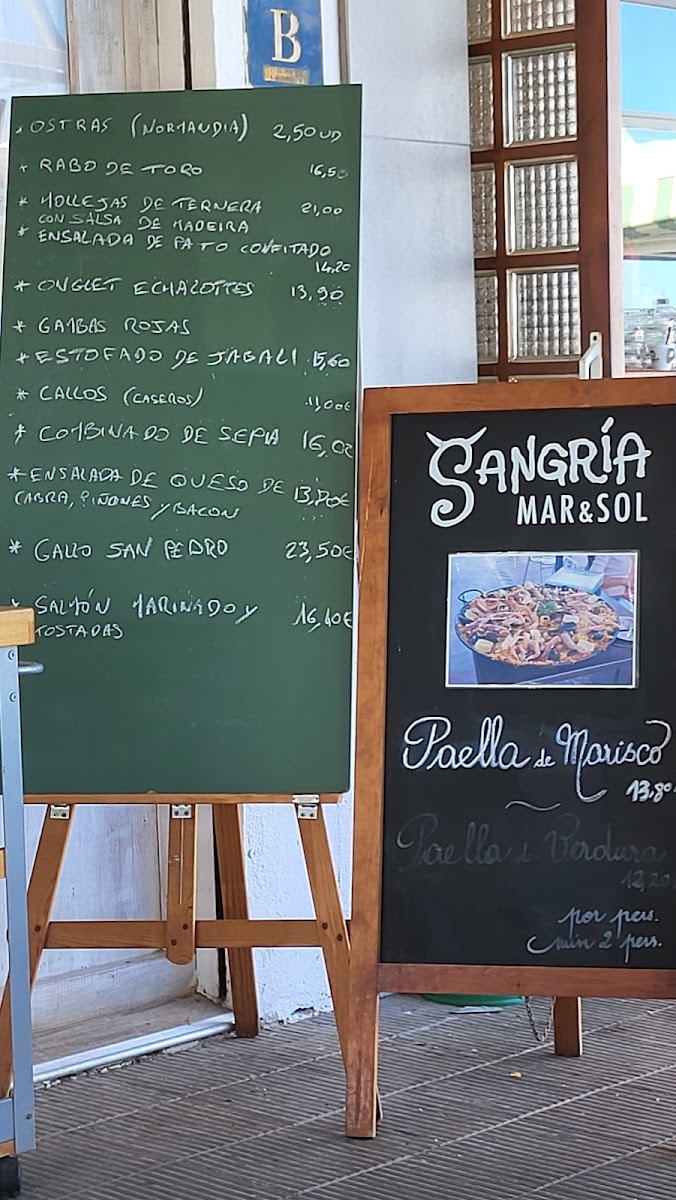 B
* OSTRAS (NORMANDIA) 2,50 UD
* RABO DE TORO 16,50
* MOLLEJAS DE TERNERA 21,00
CON SALSA DE MADEIRA
* ENSALADA DE PATO CONFITADO
14,20
* ONGLET ECHALOTTES 13,90
* GAMBAS ROJAS
* ESTOFADO DE JABALI 15,60
* CALLOS (CASEROS) 11,00€
* COMBINADO DE SEPIA 16,00
* ENSALADA DE QUESO DE 13,80€
CABRA, PIÑONES Y BACON
* GALLO SAN PEDRO 23,50€
* SALMÓN MARINADO Y 16,40€
TOSTADAS
SANGRÍA
MAR&SOL
Paella de Marisco
13,80
Paella de Verdura
12,20
por pers.
min 2 pers.